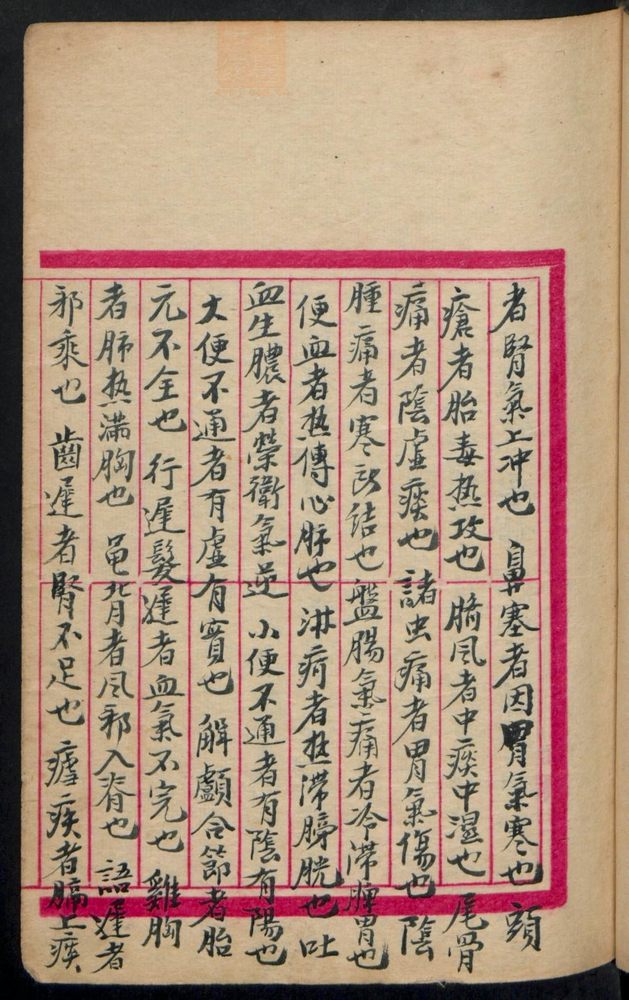 者腎氣上冲也 鼻塞者因胃氣寒也 頭
瘡者胎毒热攻也 臍风者中痰中濕也 尾骨
痛者陰虛痰也 諸虫痛者胃氣傷也 陰
腫痛者寒所結也 盤腸氣痛者冷滞脾胃也
便血者热傳心肺也 淋疴者热滞膀胱也 吐
血生膿者榮衛氣逆 小便不通者有陰有陽也
大便不通者有虛有實也 解顱合節者胎
元不全也 行遲髮遲者血氣不完也 雞胸
者肺热満胸也 龟背者风邪入脊也 語遲者
邪乘也 齒遲者腎不足也 瘧疾者膈上痰